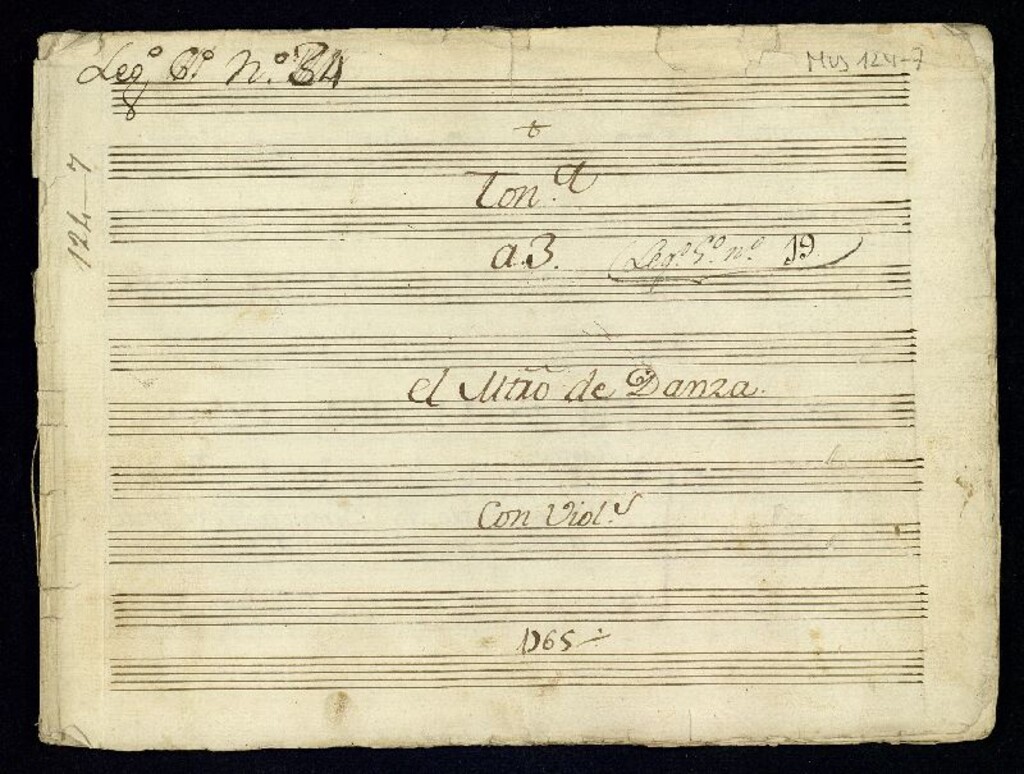 Leg.º 6º N.º 34
Mus 124-7
124-7
Ton.ª
a. 3.
Leg.º 5.º n.º 19
el Mtrõ de Danza.
Con Viol.s
1765